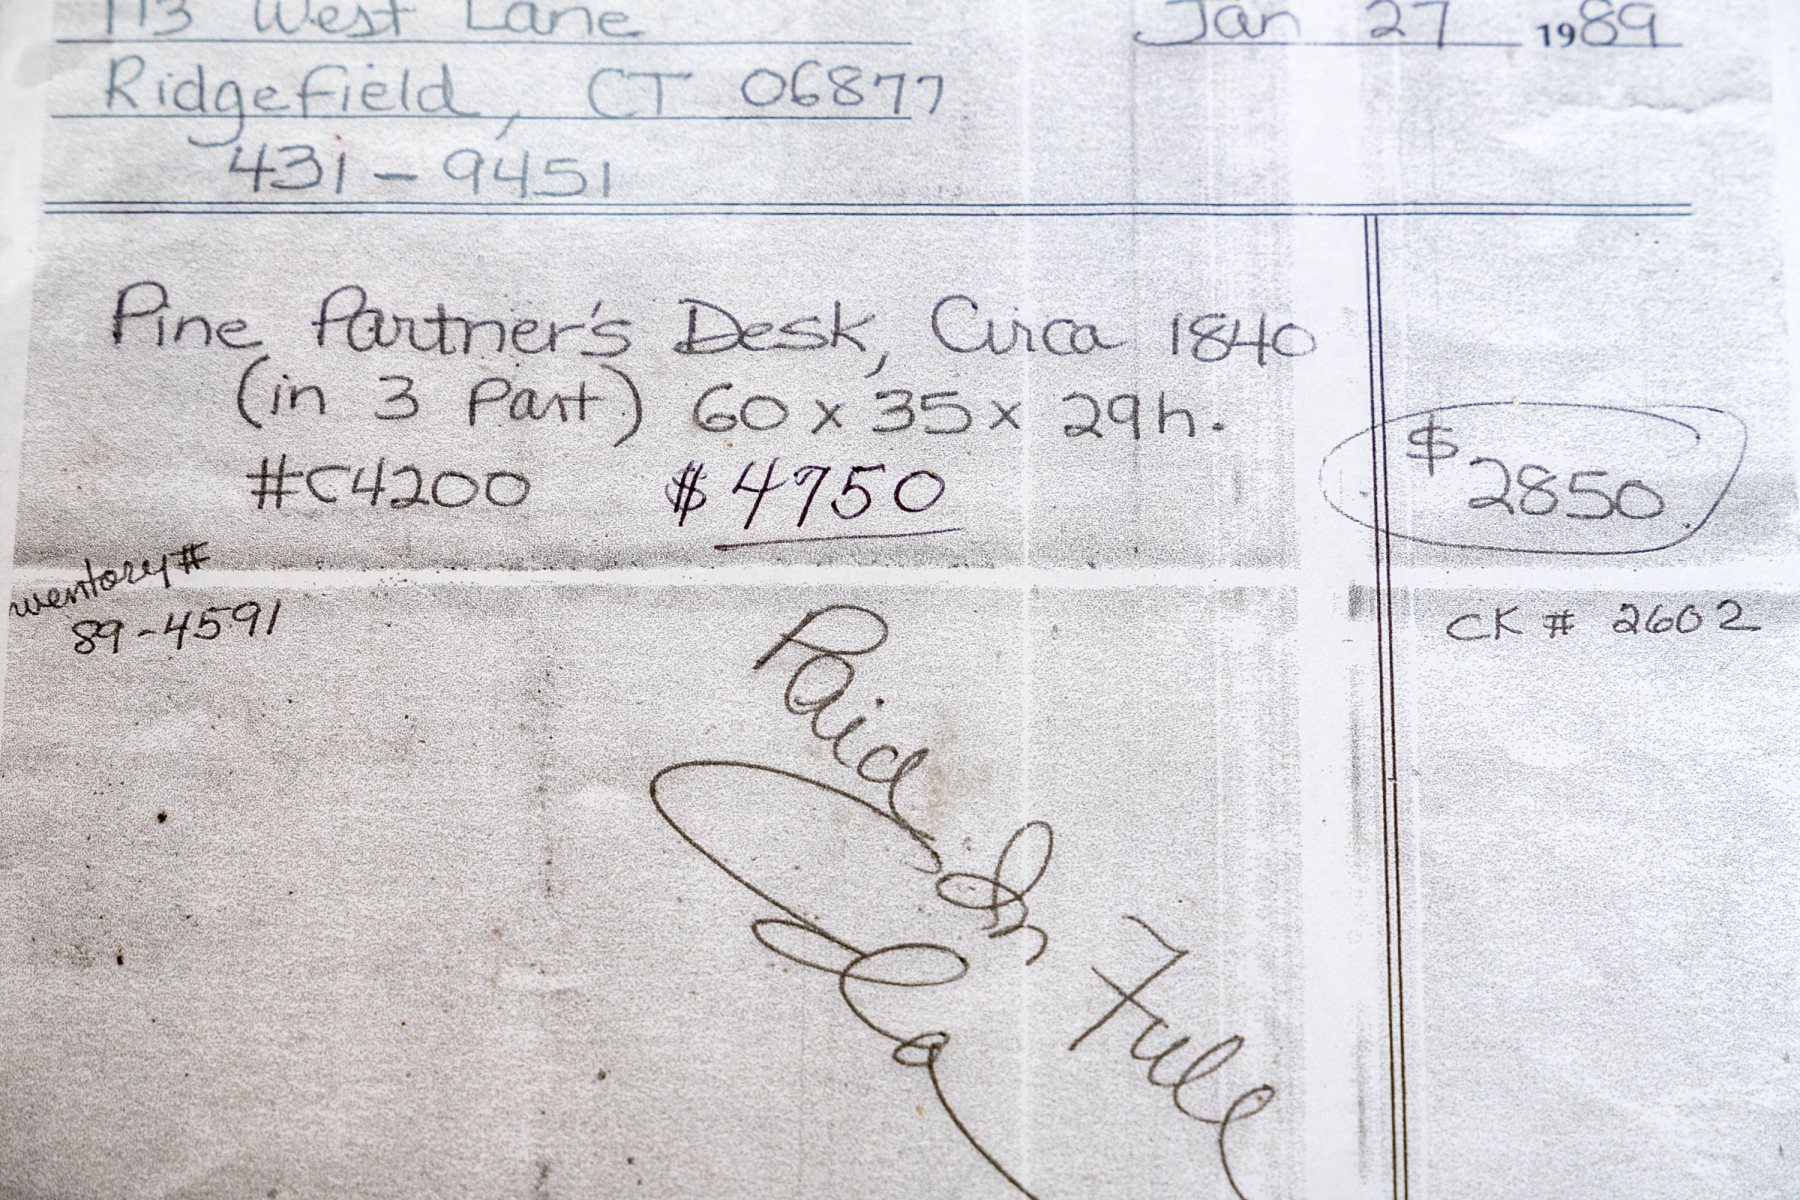 113 West Lane
Jan 27 1989
Ridgefield, CT 06877
431-9451
Pine Partner's Desk, Circa 1840
(in 3 Part) 60 x 35 x 29h.
#C4200 $4750
$2850
nventory#
89-4591
CK # 2602
Paid In Full